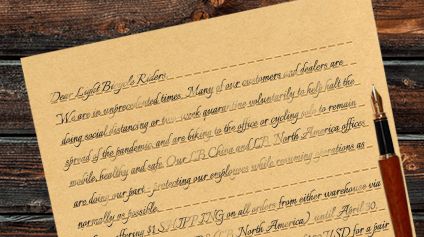 Dear Light Bicycle Riders,
We are in unprecedented times. Many of our customers and dealers are
doing social distancing or two-week quarantine voluntarily to help halt the
spread of the pandemic and are biking to the office or cycling solo to remain
mobile, healthy and safe. Our LB China and LB North America offices
are doing our part - protecting our employees while remaining operations as
normally as possible.
offering $1 SHIPPING on all orders from either warehouse via
North America) until April 30,
USD for a pair